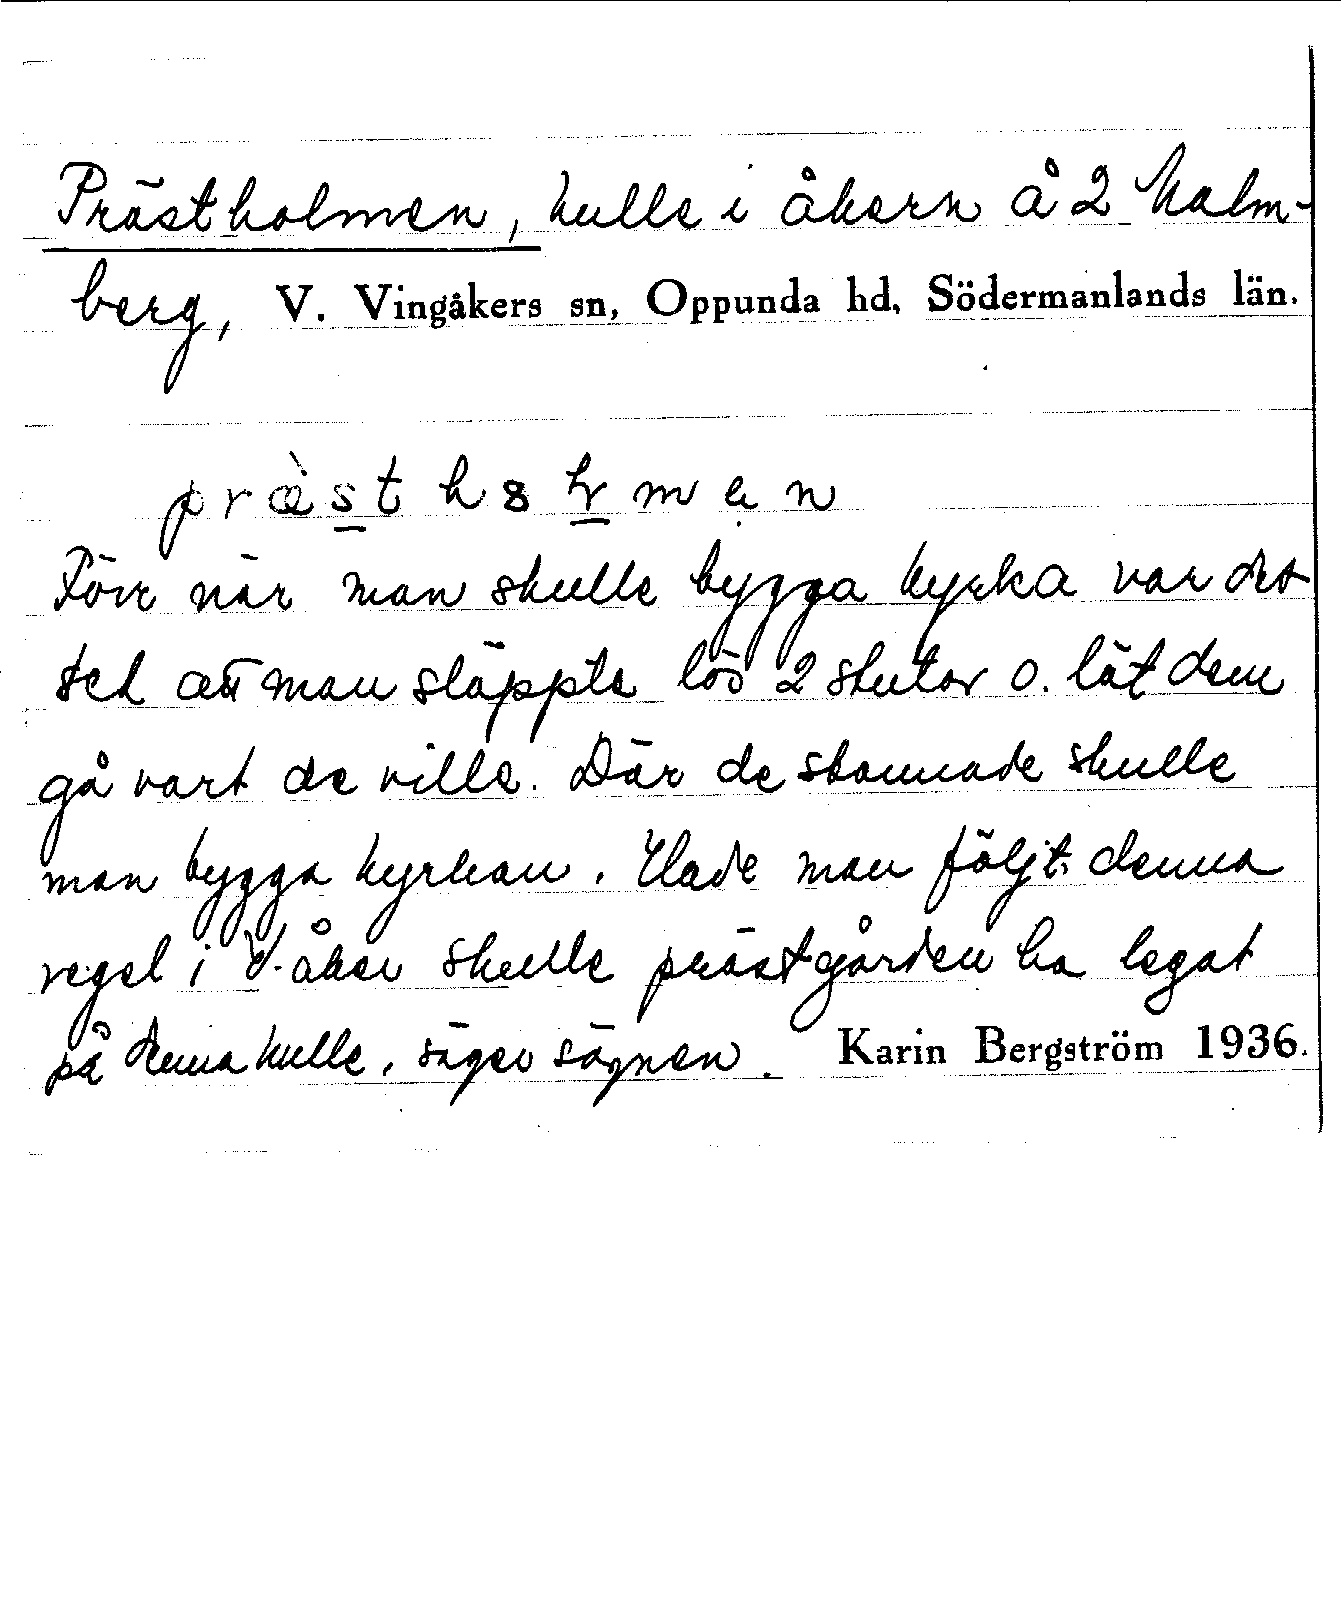 Prästholmen, kulle i åkern å 2 Malm-
berg, V. Vingåkers sn, Oppunda hd, Södermanlands län.
præ̀st h m e n
Förr när man skulle bygga kyrka var det
sed att man släppte lös 2 stutar o. lät dem
gå vart de ville. Där de stannade skulle
man bygga kyrkan. Hade man följt denna
regel i V-åker skulle prästgården ha legat
på denna kulle, säger sägnen. Karin Bergström 1936.